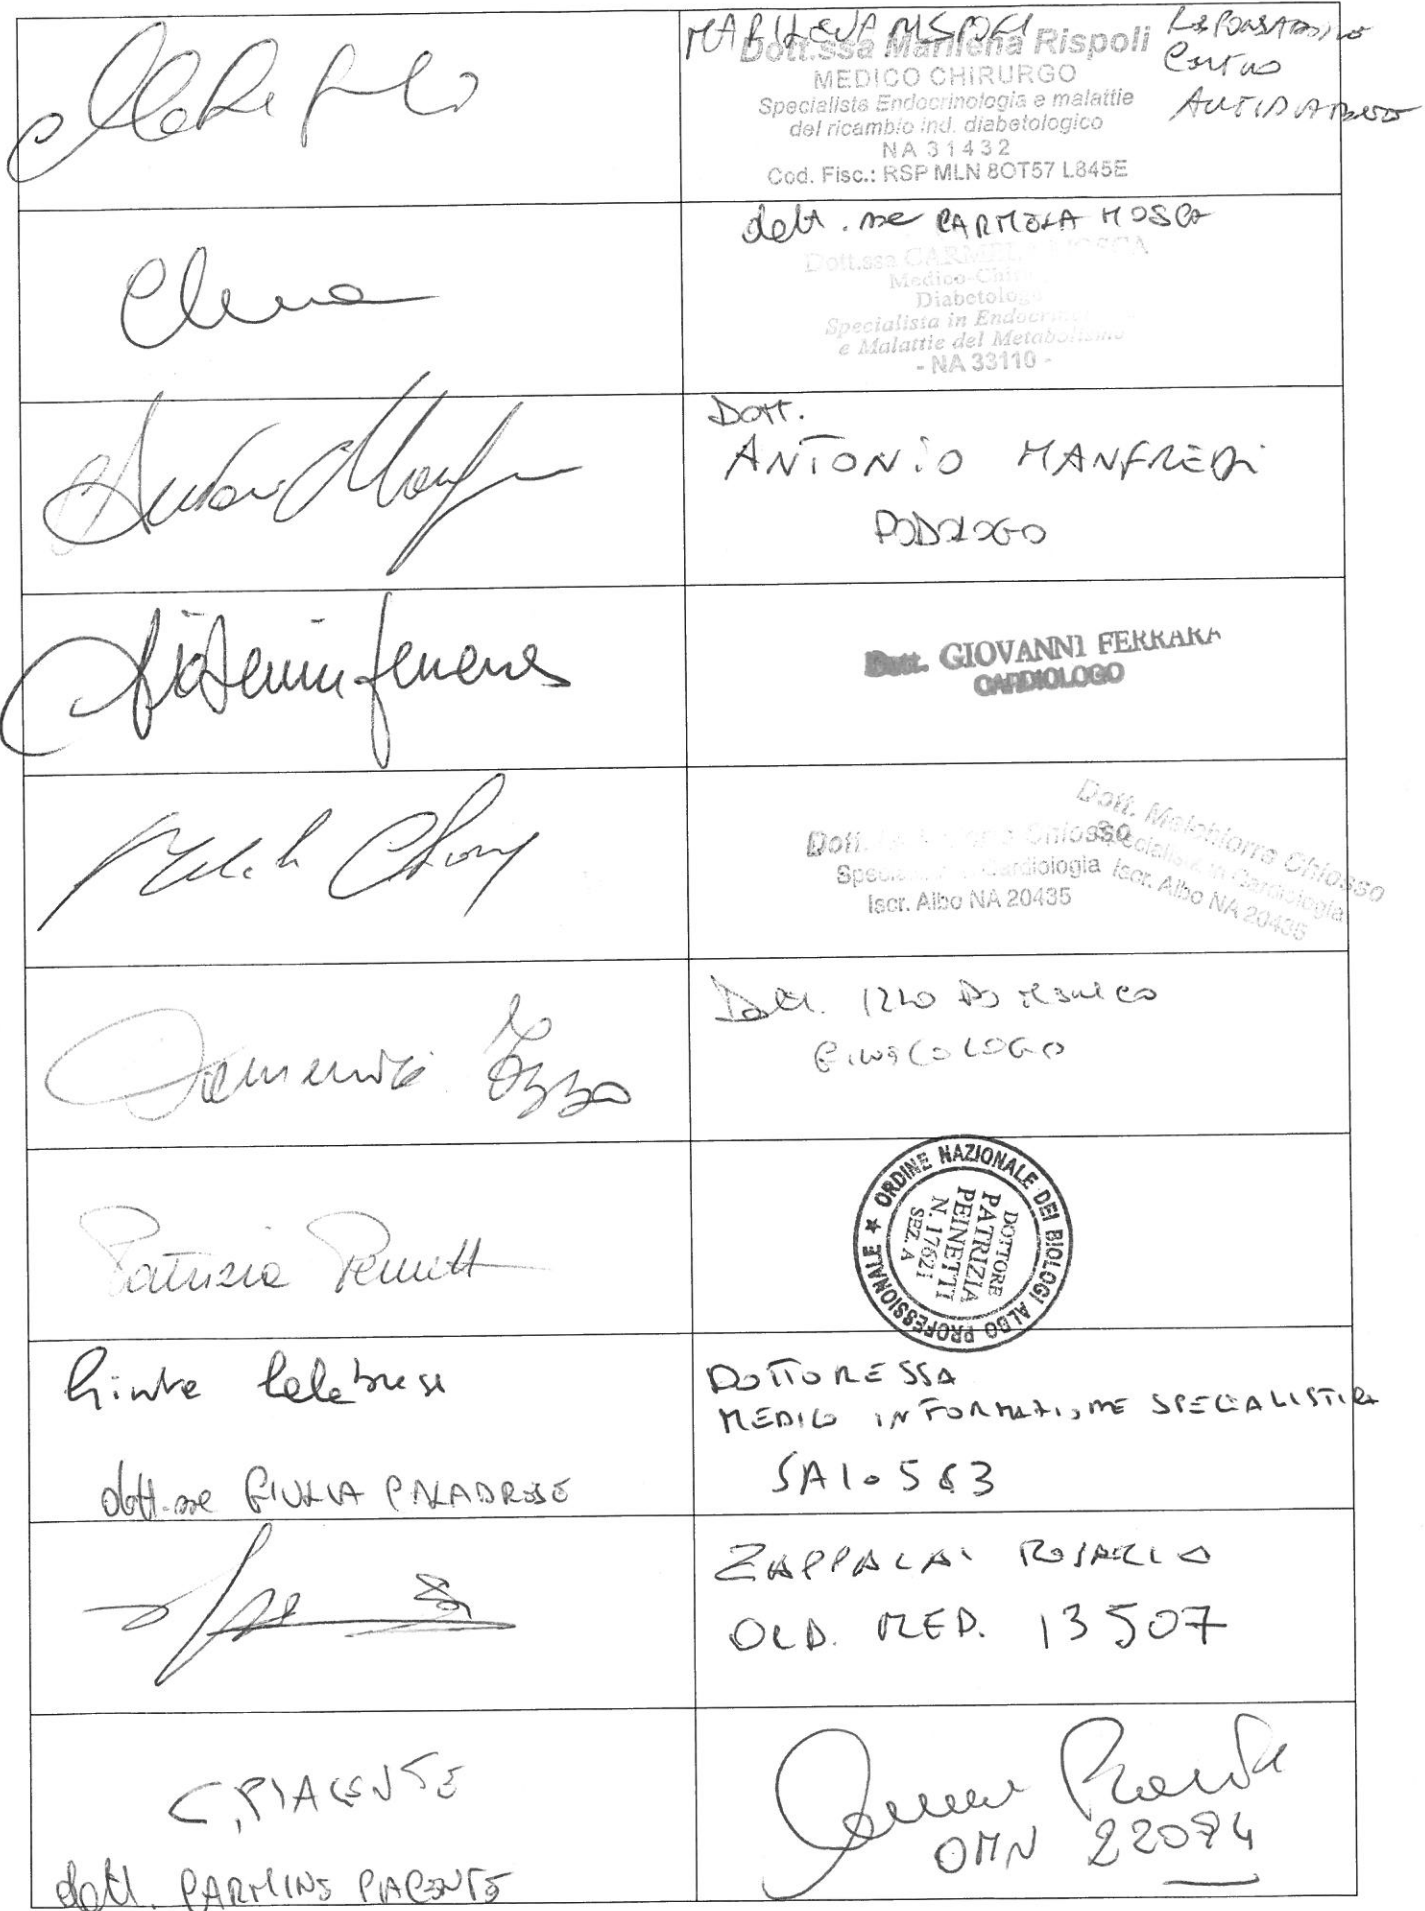 MARILENA RISPOLI
RESPONSABILE
CENTRO
ANTIDIABETE
Dott.ssa Marilena Rispoli
MEDICO CHIRURGO
Specialista Endocrinologia e malattie
del ricambio ind. diabetologico
NA 31432
Cod. Fisc.: RSP MLN 8OT57 L845E
dott.sse CARMELA MOSCA
Dott.ssa CARMELA MOSCA
Medico-Chi
Diabetolog
Specialista in Endocrin
e Malattie del Metabolismo
- NA 33110 -
Antonio Manf
DOTT.
ANTONIO MANFREDI
PODOLOGO
Giovanni Ferrara
Dott. GIOVANNI FERRARA
CARDIOLOGO
Dott. Chiosso
Specialista in Cardiologia
Iscr. Albo NA 20435
Dott. Melchiorre Chiosso
Specialista in Cardiologia
Iscr. Albo NA 20435
Domenico Izzo
Dott. IZZO DOMENICO
GINECOLOGO
Patrizia Peinetti
ORDINE NAZIONALE DEI BIOLOGI ALBO PROFESSIONALE ★
DOTTORE
PATRIZIA
PEINETTI
N. 17621
SEZ. A
Giulia Calabrese
dott.sse GIULIA CALABRESE
DOTTORESSA
MEDICO IN FORMAZIONE SPECIALISTICA
SA10563
ZAPPALA' ROSARIO
ORD. MED. 13507
C. PIACENTE
dott. CARMINE PIACENTE
OMN 22094